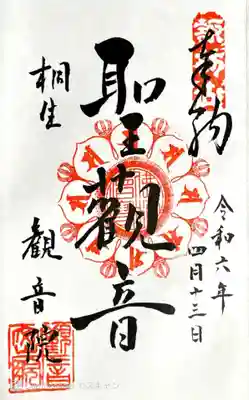 奉拝
令和六年
四月十三日
聖觀音
桐生
観音院